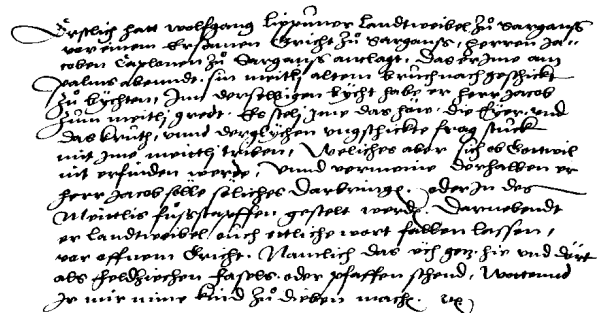 Erstlich hatt wolfgang Lippuner Landtweibel zů Sargans
vor einem Ersamen Gricht zů Sargans, herren Ja-
coben Caplonen zů Sargans anclagt, das er Ime am
palmabenndt sin meitli altem bruch nach geschickt
zů bychten, Inn derselbigen bycht habe er herr Jacob
zum meitli gredt. Es stele Ime das höw, die Eyer, und
das kruth, unnd derglychen ungschickte frag stuck
mit Ime meittli triben, Weliches aber sich ob Gott wil
nit erfinden werde, Unnd vermeine derhalben er
herr Jacob sölle soliches darbringen. oder In des
Meittlis fůsstapffen gestelt werden. Darnebendt
er Landtweibel ouch ettliche wort fallen lassen,
vor offnem Gricht. Namlich das üch hie und dört
als pfaffen schend,
Ir mir mine kind zů dieben machen.